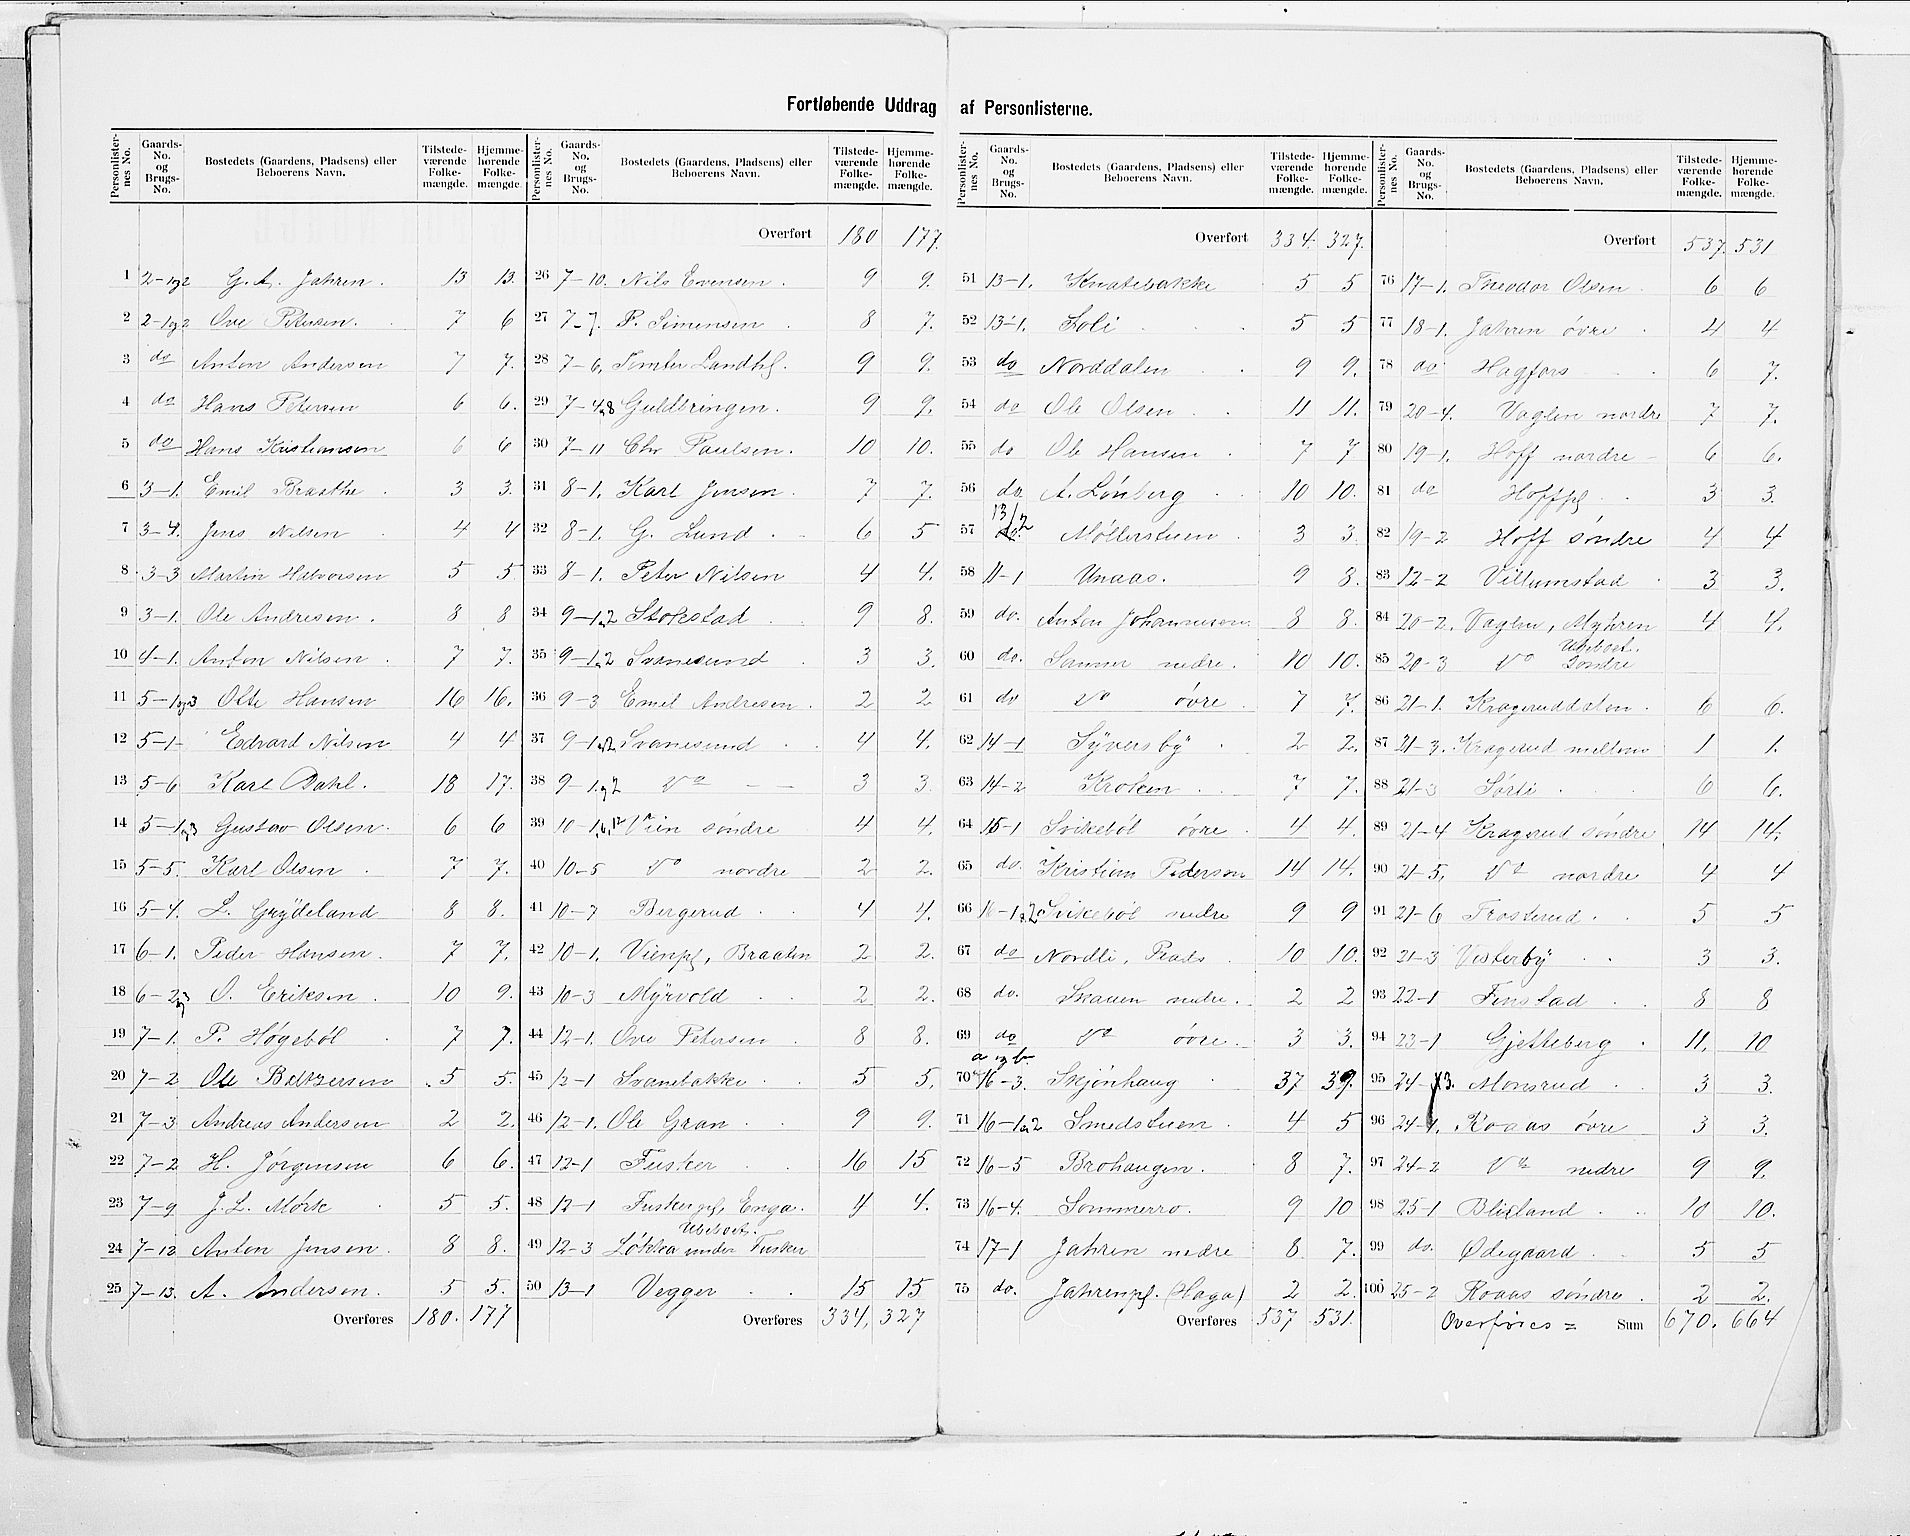 Fortløbende Uddrag af Personlisterne.
Personlisternes No. Gaards-No. og Brugs-No. Bostedets (Gaardens, Pladsens) eller Beboerens Navn. Tilstedeværende Folkemængde. Hjemmehørende Folkemængde.
1 2-1og2 G. A. Jahren. 13 13.
2 2-1og2 Ove Petersen. 7 6
3 do Anton Andersen 7 7.
4 do Hans Petersen 6 6.
5 do Hans Kristiansen 6 6
6 3-1. Emil Braathe. 3 3.
7 3-4. Jens Nilsen 4 4
8 3-3 Martin Halvorsen 5 5
9 3-1. Ole Andresen. 8 8
10 4-1. Anton Nilsen. 7 7.
11 5-1og3 Olte Hansen 16 16.
12 5-1- Edvard Nilsen 4 4
13 5-6 Karl Dahl. 18 17.
14 5-1og3 Gustav Olsen. 6 6
15 5-5. Karl Olsen. 7 7.
16 5-4. L. Grydeland 8 8.
17 6-1. Peder Hansen. 7 7.
18 6-2og3 O. Eriksen. 10 9.
19 7-1. P. Høgebøl 7 7.
20 7-2 Ole Beltzersen 5 5.
21 7-3 Andreas Andersen 2 2.
22 7-2 H. Jørgensen 6 6.
23 7-9 J. L. Mørk 5 5.
24 7-12 Anton Jensen. 8 8.
25 7-13. A. Andersen. 5 5.
Overføres 180. 177
Personlisternes No. Gaards-No. og Brugs-No. Bostedets (Gaardens, Pladsens) eller Beboerens Navn. Tilstedeværende Folkemængde. Hjemmehørende Folkemængde.
Overført 180 177.
26 7-10. Nils Evensen. 9 9.
27 7-7. P. Simensen. 8 7.
28 7-6. Tomter Landhl. 9 9.
29 7-4og8 Guldbringen. 9 9.
30 7-11 Chr Paulsen. 10 10.
31 8-1. Karl Jensen. 7 7.
32 8-1. G. Lund. 6 5
33 8-1. Peter Nilsen 4 4.
34 9-1og2 Stokstad 9 8.
35 9-1og2 Svanesund 3 3.
36 9-3 Emil Andresen. 2 2
37 9-1og2 Svanesund 4 4.
38 9-1og2 Do 3 3.
39 10-1,6,12 Vien søndre 4 4.
40 10-5 Do nordre 2 2.
41 10-7 Bergerud 4 4.
42 10-1. Vienpl, Braaten 2 2.
43 10-3 Myrvold 2 2.
44 12-1. Ove Petersen. 8 8.
45 12-1 Svanebakke 5 5.
46 12-1. Ole Gran. 9 9.
47 12-1 Fusker 16 15
48 12-1 Fuskerpl, Enga. 4 4.
Ubeboet.
49 12-3 Løkka under Fusker
50 13-1 Vegger 15 15
Overføres 334, 327
Personlisternes No. Gaards-No. og Brugs-No. Bostedets (Gaardens, Pladsens) eller Beboerens Navn. Tilstedeværende Folkemængde. Hjemmehørende Folkemængde.
Overført 334. 327.
51 13-1. Knatebakke 5 5
52 13-1. Soli 5 5
53 do Norddalen 9 9.
54 do Ole Olsen 11 11.
55 do Ole Hansen 7 7
56 do A. Lønberg 10 10.
57 13/2 Møllerstuen. 3 3.
58 11-1 Unaas. 9 8.
59 do. Anton Johannesen 8 8.
60 do. Sanner nedre. 10 10.
61 do Do øvre. 7 7.
62 14-1 Syversby 2 2.
63 14-2 Kroken 7 7.
64 15-1 Svikebøl øvre 4 4.
65 do. Kristian Pederson 14 14.
66 16-1og2 Svikebøl nedre 9 9
67 do Nordli, Plads 10 10.
68 do. Skauen nedre. 2 2
69 do Do øvre. 3 3.
a og b
70 16-3. Skjønhaug 37 39.
71 16-1og2 Smedstuen. 4 5
72 16-5 Brohaugen. 8 7.
73 16-4. Sommerro. 9 10
74 17-1 Jahren nedre 8 7.
75 do. Jahrenpl. (Haga) 2 2.
Overføres 537 531.
Personlisternes No. Gaards-No. og Brugs-No. Bostedets (Gaardens, Pladsens) eller Beboerens Navn. Tilstedeværende Folkemængde. Hjemmehørende Folkemængde.
Overført 537. 531
76 17-1. Theodor Olsen. 6 6
77 18-1. Jahren øvre. 4 4
78 do Hagfors 6 7.
79 20-4. Vaglen nordre 7 7.
80 19-1. Hoff nordre 6 6.
81 do Hoffpl 3 3.
82 19-2 Hoff søndre 4 4
83 12-2 Villumstad 3 3.
84 20-2. Vaglen, Myhren 4 4.
Ubeboet.
85 20-3 Do Søndre
86 21-1. Krageruddalen. 6 6.
87 21-3. Kragerud mellem 1 1.
88 21-3 Sørli 6 6.
89 21-4 Kragerud søndre 14 14.
90 21-5, Do nordre 4 4
91 21-6 Frosterud. 5 5
92 21-3 Vesterby 3 3.
93 22-1 Finstad 8 8
94 23-1 Gjetteberg. 11. 10
95 24-3. Monsrud 3 3.
96 24-1. Roaas øvre 3 3.
97 24-2 Do nedre 9 9.
98 25-1 Blixland 10 10.
99 do. Ødegaard. 5 5
100 25-2 Roaas søndre. 2 2.
Overføres = Sum 670. 664